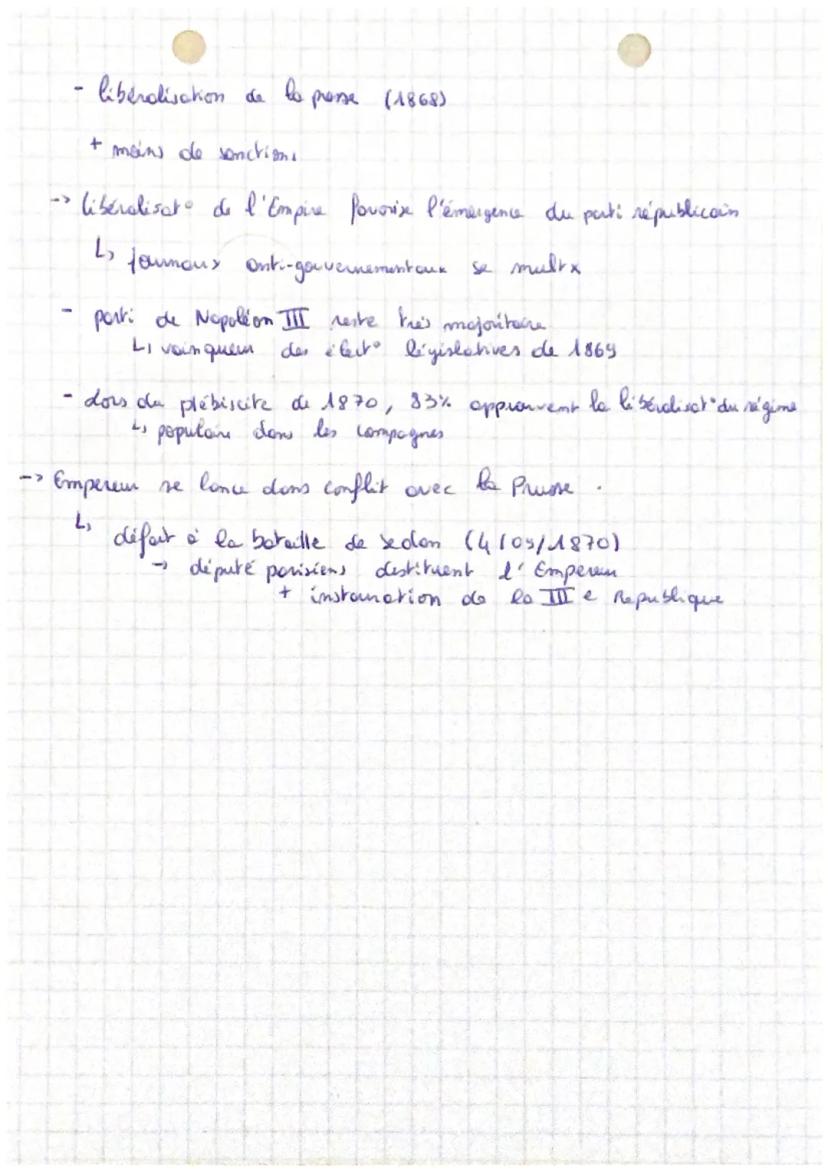 - libéralisation de la presse (1868)
+ moins de sanctions
-> libéralisat° de l'Empire favorise l'émergence du parti républicain
↳ journaux anti-gouvernementaux se mult x
- parti de Napoléon III reste très majoritaire
↳ vainqueur des élect° législatives de 1869
- dors du plébiscite de 1870, 83% approuvent la libéralisat° du régime
↳ populaire dans les campagnes
-> Empereur se lance dans conflit avec la Prusse.
↳ défait à la bataille de Sedan (4/09/1870)
-> député parisiens destituent l'Empereur
+ instauration de la III e République